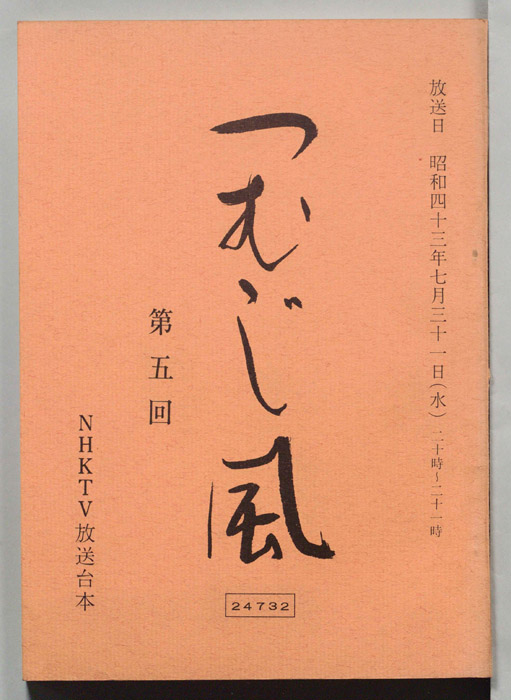 放送日　昭和四十三年七月三十一日(水)　二十時~二十一時
つむじ風
第五回
NHKTV放送台本
24732